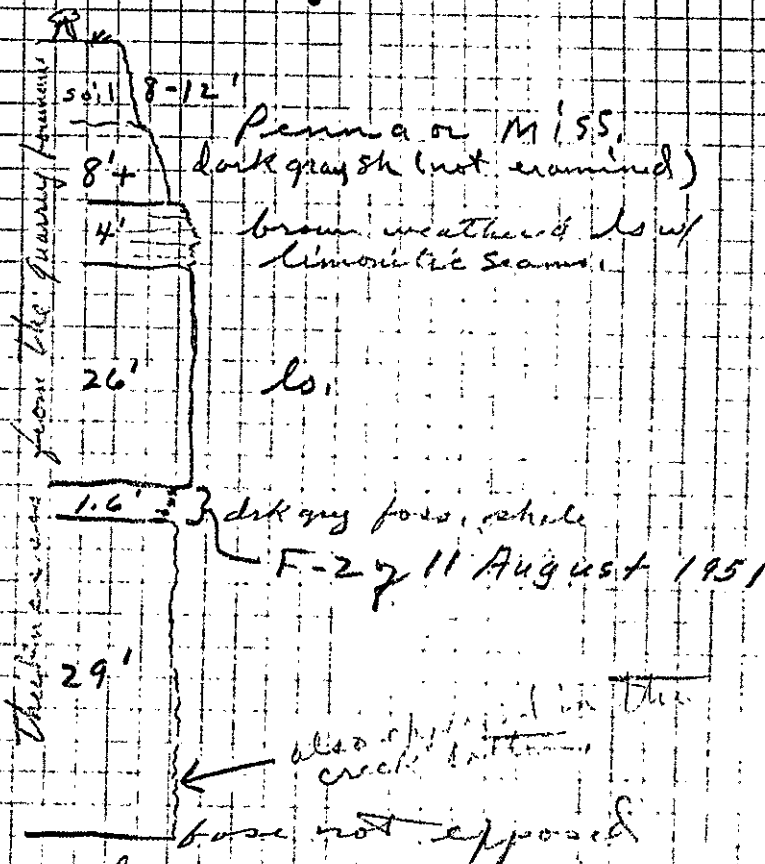 soil 8-12'
Penna or Miss.
8'+ dark gray sh (not examined)
4' brown weathered ls w/
limonitic seams.
26' ls.
1.6' drk gry foss. shale
F-2 of 11 August 1951
29'
also exposed in the
creek bottom
base not exposed
from the quarry